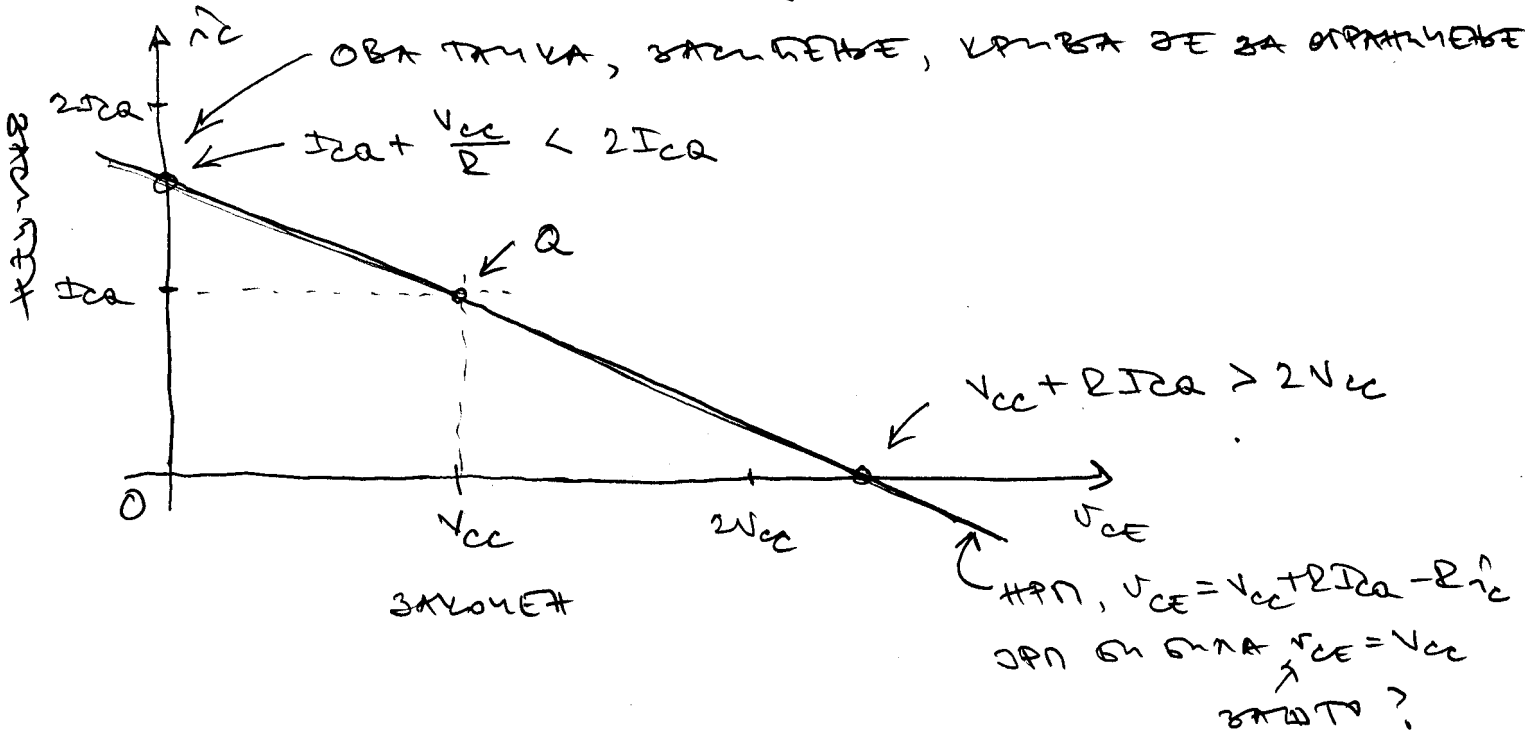 i_C
ОВА ТАЧКА, ЗАСИЋЕЊЕ, КРИВА ЈЕ ЗА ОГРАНИЧЕЊЕ
2I_CQ
I_CQ + V_CC/R < 2I_CQ
ЗАСИЋЕН
Q
I_CQ
V_CC + RI_CQ > 2V_CC
0
V_CC
2V_CC
v_CE
ЗАКОЧЕН
НРП, v_CE = V_CC + RI_CQ - Ri_C
ЈРП БИ БИЛА v_CE = V_CC
ЗАШТО?